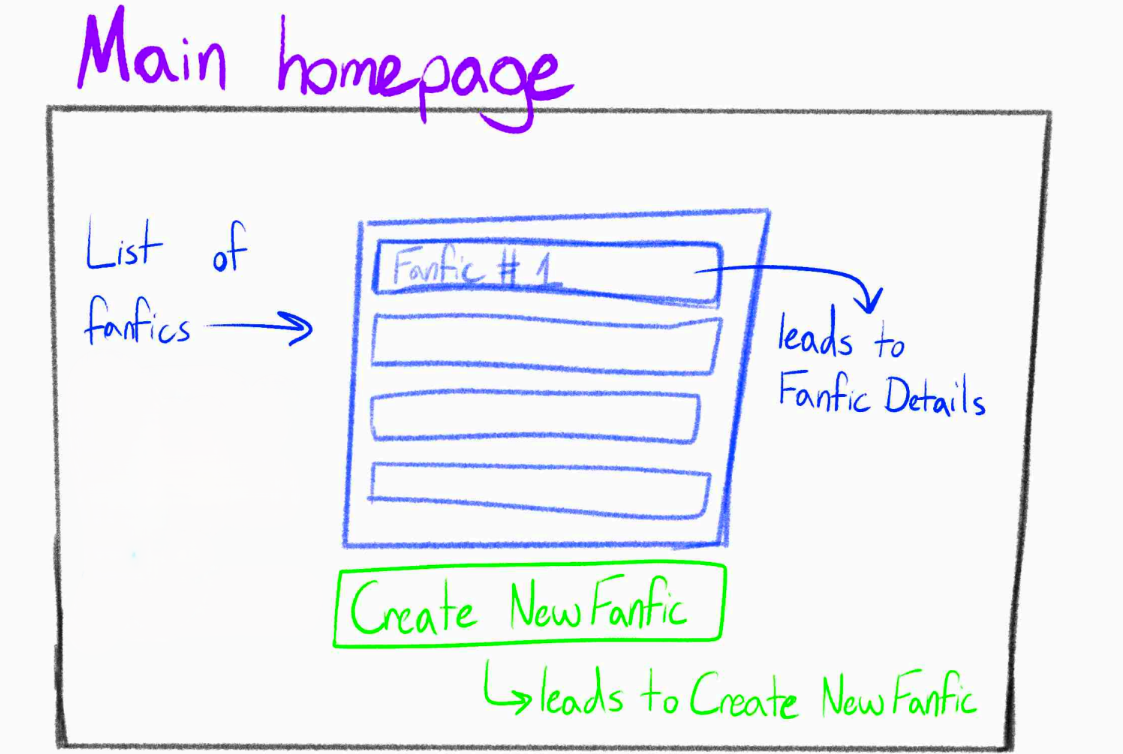 Main homepage
List of
fanfics
Fanfic # 1
leads to
Fanfic Details
Create New Fanfic
leads to Create New Fanfic